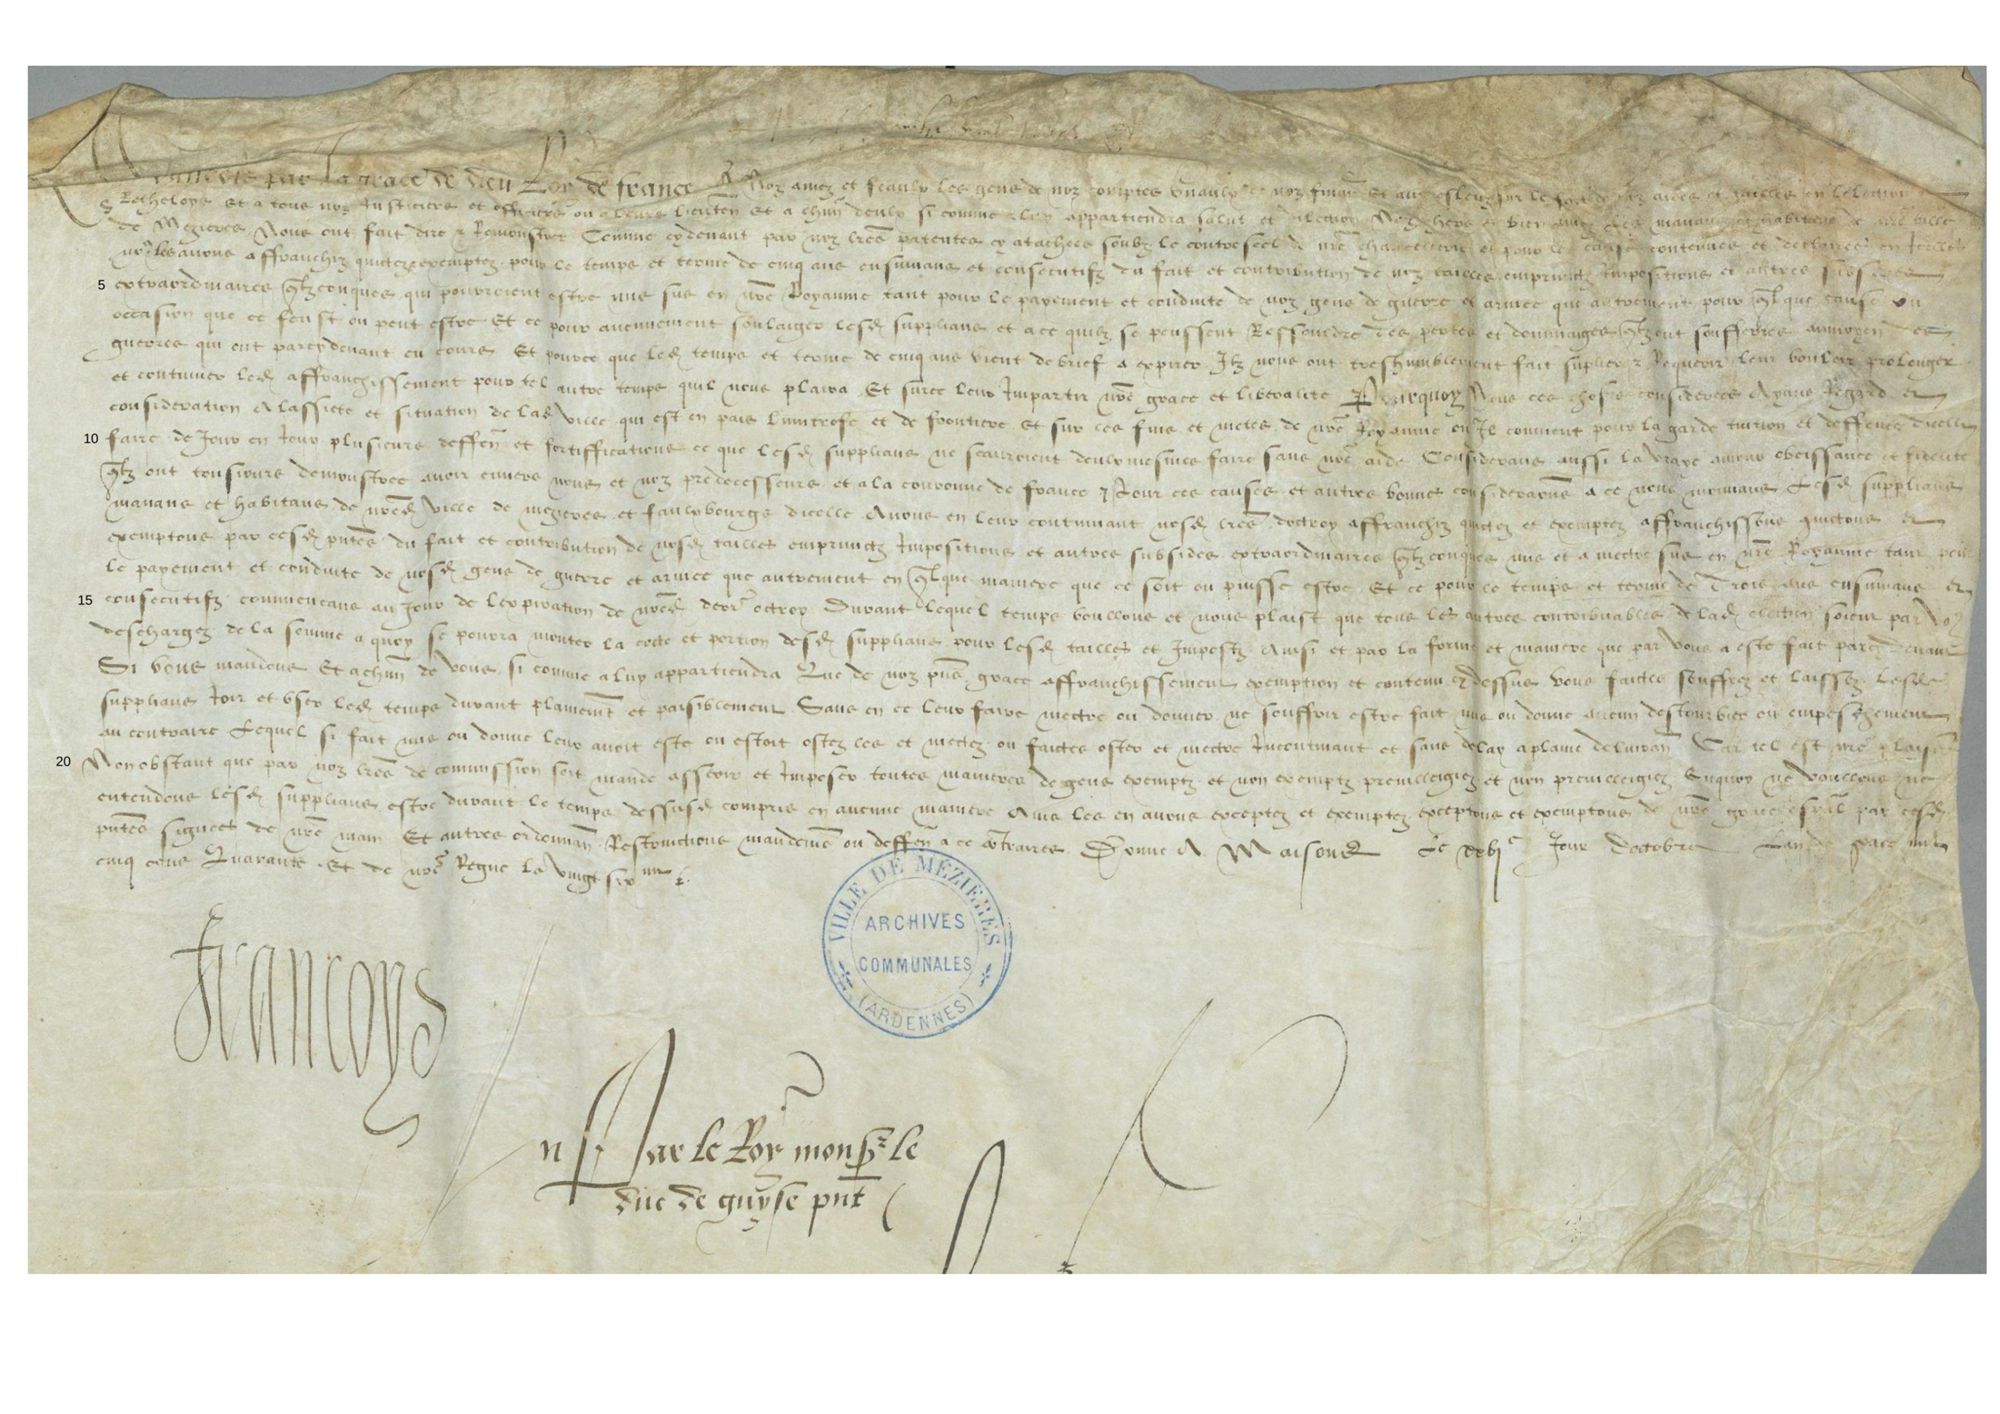 par la grace de dieu Roy de france A Noz amez et feaulx les gens de noz comptes
Retheloys et a tous noz Justiciers et officiers ou a leurs lieuten et a chun deulx si comme a luy appartiendra salut et dilection Noz chers et bien amez les manans et habitans de nre ville
de Mezieres Nous ont fait dire et Remonstrer Comme cydevant par noz lres patentes cy atachees soubz le contreseel de nre chancellerie et pour les causes contenues et declairees en Icelles
nous les avons affranchiz quictez exemptez pour le temps et terme de cinq ans ensuivans et consecutifz du fait et contribution de noz tailles empriunctz Impositions et autres subsides
5 extraordinaires qlzconques qui pourroient estre mis sus en nre Royaume tant pour le payement et conduite de noz gens de guerre et armee que autrement pour qlque cause ou
occasion que ce feust ou peut estre Et ce pour aucunement soulaiger lesd supplians et a ce quilz se peussent Ressouldre des pertes et dommaiges qlz ont souffertes au moyen des
guerres qui ont par cydevant eu cours Et pource que led temps et terme de cinq ans vient de brief a expirer Ilz nous ont treshumblement fait suplier et Requerir leur vouloir prolonger
et continuer led affranchissement pour tel autre temps quil nous plaira Et surce leur Impartir nre grace et liberalite Pourquoy Nous ces choses considerees Ayans Regard et
consideration A lassiete et situation de lad Ville qui est en pais limitrofe et de frontiere et sur les fins et metes de nre Royaume ou Il convient pour la garde tuition et deffence dicelle
10 faire de Jour en Jour plusieurs deffen et fortiffications ce que lesd supplians ne scauroient deulx mesmes faire sans nre aide Considerans aussi la vraye amour obeissance et fidelite
qlz ont tousiours demonstree avoir envers nous et noz predecesseurs et a la couronne de france Pour ces causes et autres bonnes consideracons a ce nous mouvans Lesd supplians
manans et habitans de nred Ville de mezieres et faulxbourgs dicelle Avons en leur continuant nosd lres doctroy affranchiz quictez et exemptez affranchissons quictons et
exemptons par cesd pntes du fait et contribution de nosd tailles empriunctz Impositions et autres subsides extraordinaires qlzconques mis et a mectre sus en nre Royaume tant pour
le payement et conduite de nosd gens de guerre et armee que autrement en qlque maniere que ce soit ou puisse estre Et ce pour le temps et terme de Trois ans ensuivans et
15 consecutifz commencans au Jour de lexpiration de nred derr octroy Durant lequel temps voullons et nous plaist que tous les autres contribuables de lad election soient par vo
deschargez de la somme a quoy se pourra monter la cotte et portion desd supplians pour lesd tailles et Impostz Ainsi et par la forme et maniere que par vous a este fait parcy devant
Si vous mandons Et achun de vous si comme a luy appartiendra Que de noz pns grace affranchissement exemption et contenu cy dessus vous faictes souffrez et laissez lesd
supplians Joir et user led temps durant plainemt et paisiblement Sans en ce leur faire mectre ou donner ne souffrir estre fait mis ou donne aucun destourbier ou empeschement
au contraire Lequel si fait mis ou donne leur avoit este ou estoit ostez les et mectez ou faictes oster et mectre Incontinant et sans delay a plaine delivran Car tel est nre plaisir
20 Nonobstant que par noz lres de commission soit mande asseoir et Imposer toutes manieres de gens exemptz et non exemptz previlleigiez et non previlleigiez Enquoy ne voullons ne
entendons lesd supplians estre durant le temps dessusd compris en aucune maniere Ains les en avons exceptez et exemptez exceptons et exemptons de nre grace espal par cesd
pntes signees de nre main Et autres ordonnan Restrinctions mandemens ou deffen a ce contraires Donne A Maisons Le xxvj e Jour doctobre Lan de grace mil
cinq cens Quarante Et de nre Regne le Vingt six me
francoys
VILLE DE MÉZIÈRES
ARCHIVES
COMMUNALES
(ARDENNES)
Par le Roy monsr le
duc de guyse pnt